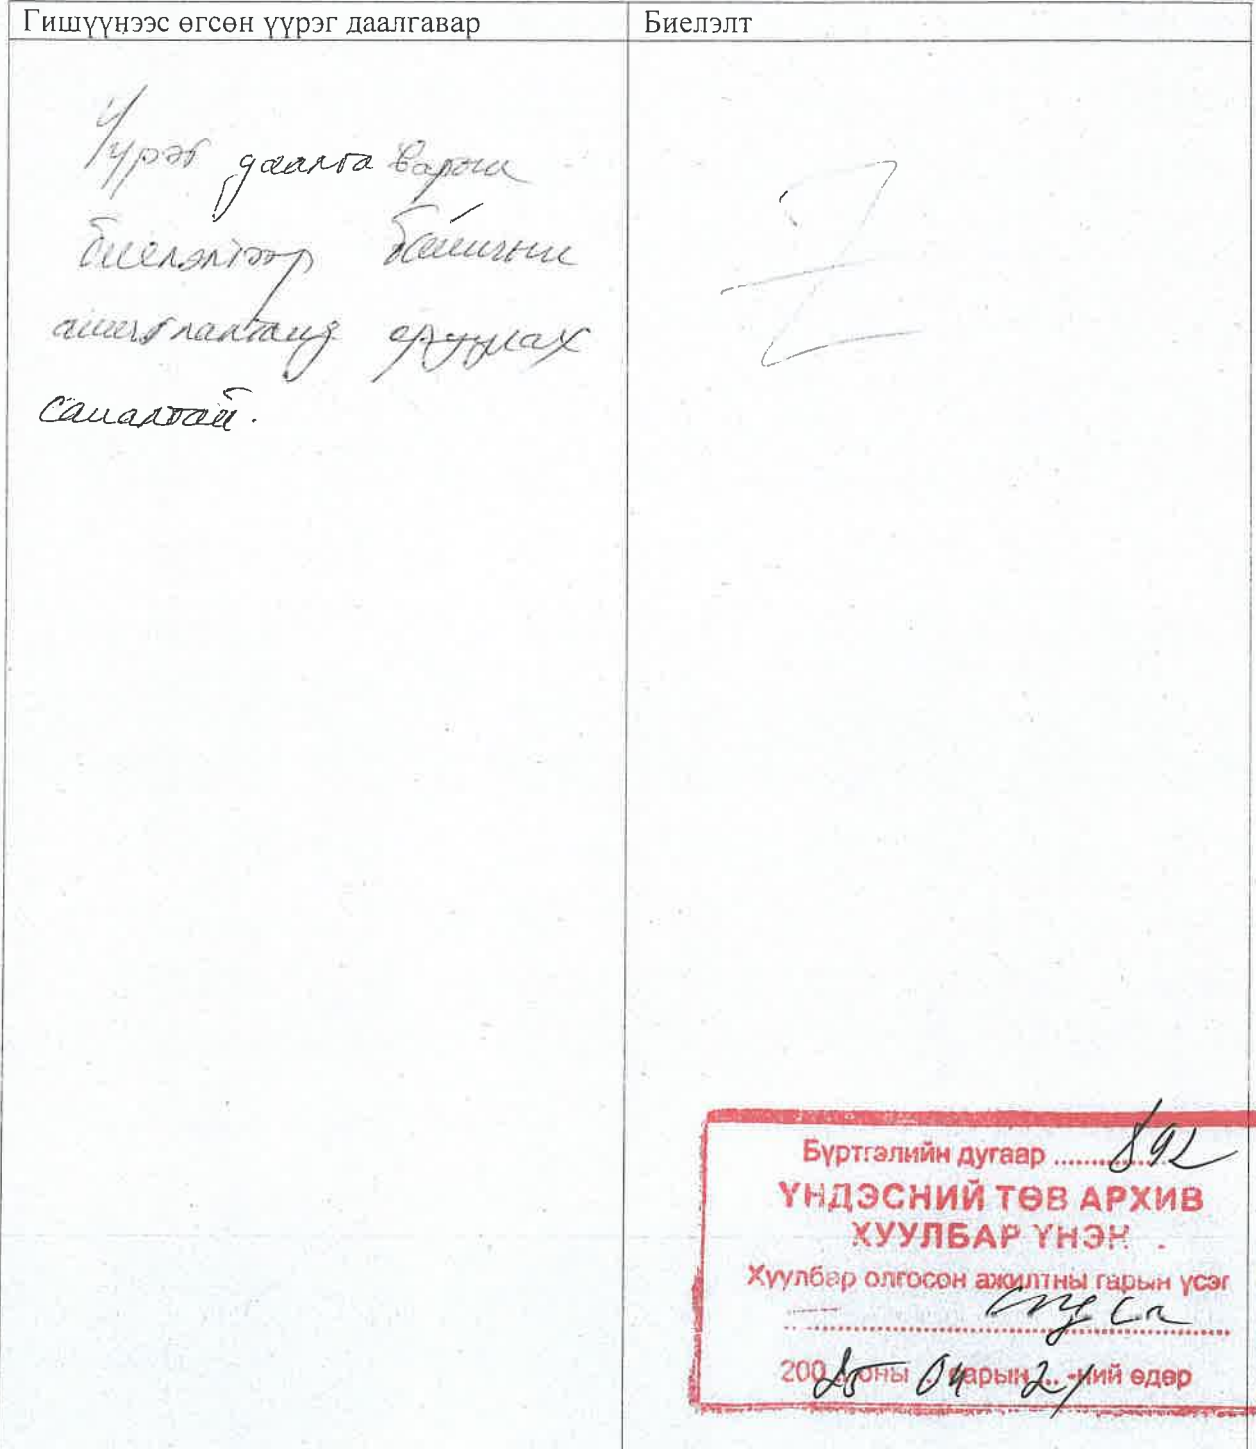 Гишүүнээс өгсөн үүрэг даалгавар
Биелэлт
Үүрэг даалгаварын
биелэлтээр байшинг
ашиглалтанд оруулах
саналтай.
Z
Бүртгэлийн дугаар ................ 892
ҮНДЭСНИЙ ТӨВ АРХИВ
ХУУЛБАР ҮНЭН
Хуулбар олгосон ажилтны гарын үсэг
200 25 оны 04 сарын 21 -ний өдөр